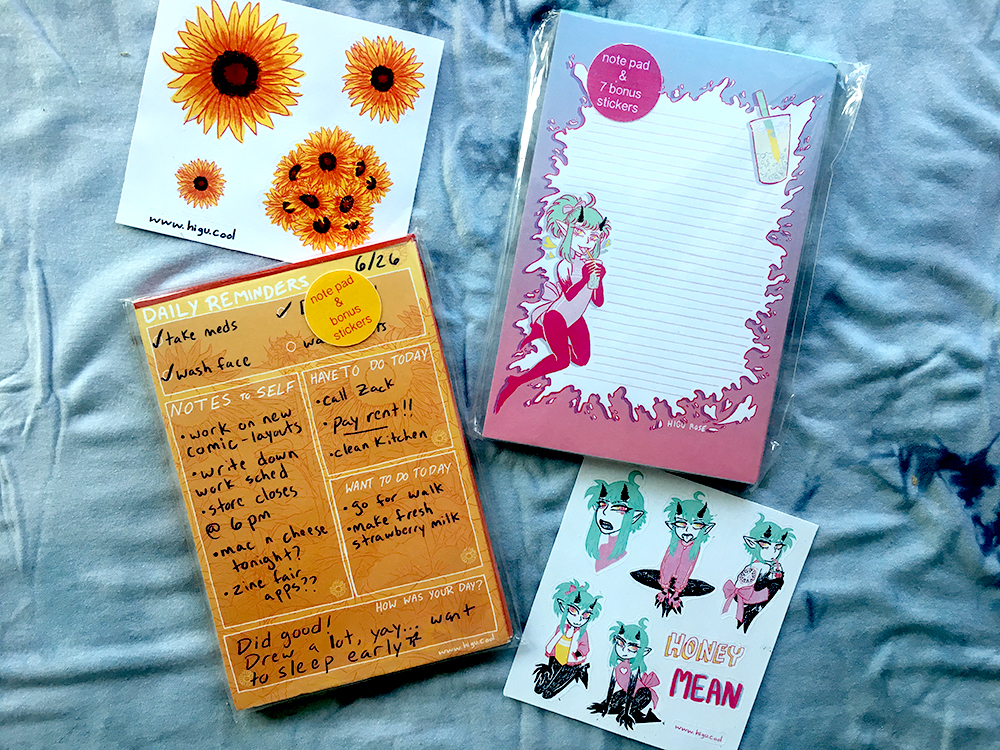 www.higu.cool
note pad
&
7 bonus
stickers
HIGU ROSE
6/26
DAILY REMINDERS
note pad
&
bonus
stickers
take meds
wash face
NOTES TO SELF
• work on new
comic-layouts
• write down
work sched
• store closes
@ 6 pm
• mac n cheese
tonight?
• zine fair
apps??
HAVE TO DO TODAY
• call Zack
• pay rent!!
• clean Kitchen
WANT TO DO TODAY
• go for walk
• make fresh
strawberry milk
HOW WAS YOUR DAY?
Did good!
Drew a lot, yay... want
to sleep early
www.higu.cool
HONEY
MEAN
www.higu.cool